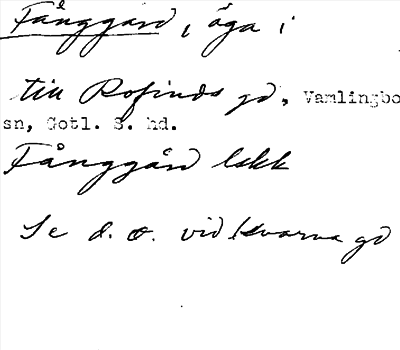 Fånggård, äga i
till Rofinds gd, Vamlingbo
sn, Gotl. S. hd.
Fånggård lekk
Se d. o. vid Kvarna gd